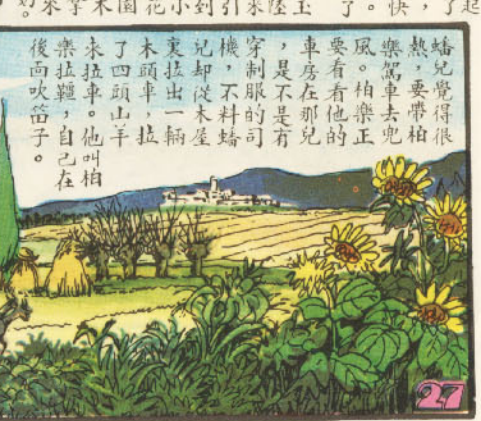 蟠兒覺得很
熱，要帶柏
樂駕車去兜
風。柏樂正
要看看他的
車房在那兒
，是不是有
穿制服的司
機，不料蟠
兒却從木屋
裏拉出一輛
木頭車，拉
了四頭山羊
來拉車。他叫柏
樂拉韁，自己在
後面吹笛子。
27